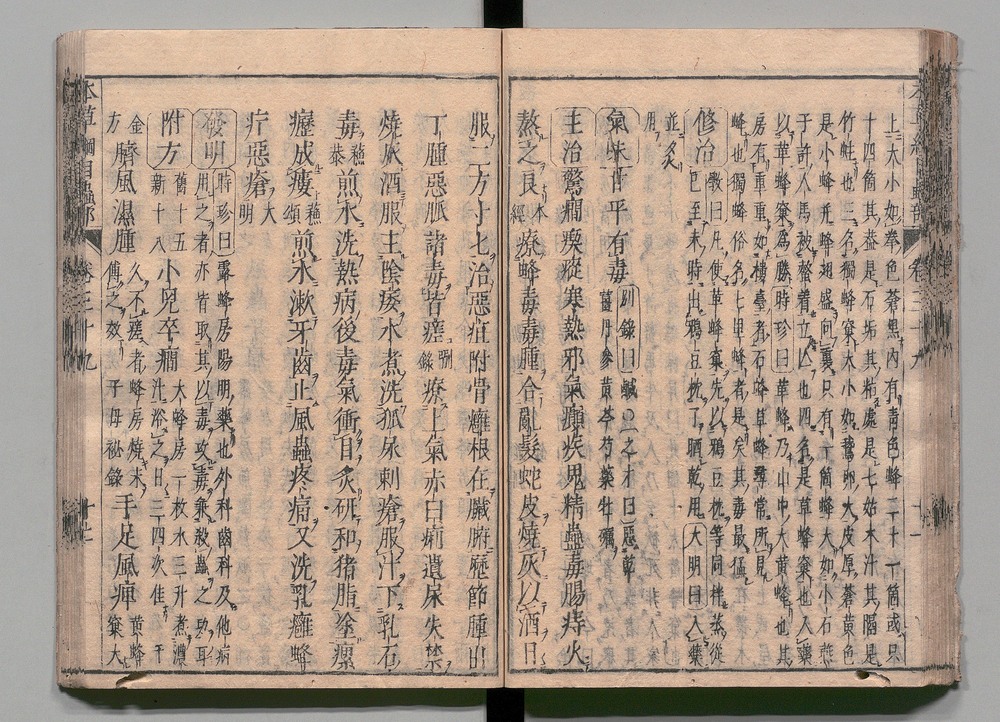 上大小如拳色蒼黑內有青色蜂二十一箇或只
十四箇其蓋是石垢其粘處是七姑木汁其隔是
竹蛀也三名獨蜂窠大小如鵞卵大皮厚蒼黃色
是小蜂并蜂翅盛向裏只有一箇蜂大如小石燕
子許人馬被螫着立亡也四名是草蜂窠也入藥
以革蜂窠爲勝時珍曰革蜂乃山中大黃蜂也其
房有重重如樓臺者石蜂草蜂尋常所見
蜂也獨蜂俗名七里蜂者是矣其毒最猛
修治斅曰凡使革蜂窠先以鴉豆枕等同拌蒸從
巳至未時出鴉豆枕了晒乾用大明曰入藥
並炙
用
氣味甘平有毒別錄曰鹹〇之才曰惡乾
薑丹參黃芩芍藥牡蠣
主治驚癇瘈瘲寒熱邪氣癲疾鬼精蠱毒腸痔火
熬之良本經療蜂毒毒腫合亂髮蛇皮燒灰以酒日
服二方寸七治惡疽附骨癰根在臟腑歷節腫出
丁腫惡脈諸毒皆瘥別錄療上氣赤白痢遺尿失禁
燒灰酒服主陰痿水煮洗狐尿刺瘡服汁下乳石
毒蘇恭煎水洗熱病後毒氣衝目炙研和猪脂塗瘰
癧成瘻蘇頌煎水漱牙齒止風蟲疼痛又洗乳癰蜂
疔惡瘡大明
發明時珍曰露蜂房陽明藥也外科齒科及他病
用之者亦皆取其以毒攻毒兼殺蟲之功耳
附方舊十五新十八小兒卒癇大蜂房一枚水三升煮濃
汁浴之日三四次佳千
金方臍風濕腫久不瘥者蜂房燒末
傅之效子母祕錄手足風痺黃蜂
窠大
本草綱目蟲部
卷三十九